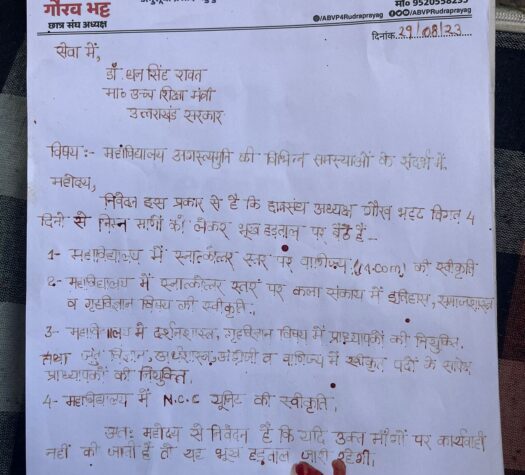 गौरव भट्ट
छात्र संघ अध्यक्ष
मो० 9520558235
@/ABVP4Rudraprayag /ABVPRudraprayag
दिनांक 29/08/23
सेवा में,
डॉ धन सिंह रावत
मा० उच्च शिक्षा मंत्री
उत्तराखंड सरकार
विषय :- महाविद्यालय अगस्त्यमुनि की विभिन्न समस्याओं के संदर्भ में.
महोदय,
निवेदन इस प्रकार से है कि छात्रसंघ अध्यक्ष गौरव भट्ट विगत 4
दिनों से निम्न मांगों को लेकर भूख हड़ताल पर बैठे हैं -
1- महाविद्यालय में स्नातकोत्तर स्तर पर वाणिज्य (M.com) की स्वीकृति
2- महाविद्यालय में स्नातकोत्तर स्तर पर कला संकाय में इतिहास, समाजशास्त्र
व गृहविज्ञान विषय की स्वीकृति.
3- महाविद्यालय में दर्शनशास्त्र, गृहविज्ञान विषय में प्राध्यापकों की नियुक्ति.
तथा जंतु विज्ञान, अर्थशास्त्र, अंग्रेजी व वाणिज्य में स्वीकृत पदों के सापेक्ष
प्राध्यापकों की नियुक्ति.
4- महाविद्यालय में N.C.C यूनिट की स्वीकृति.
अतः महोदय से निवेदन है कि यदि उक्त माँगों पर कार्यवाही
नहीं की जाती है तो यह भूख हड़ताल जारी रहेगी.